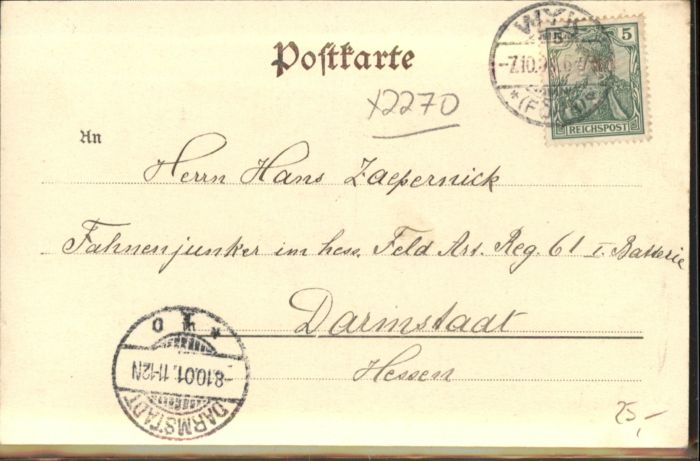 Postkarte
WYK
5
-7.10.
*(FÖHR)*
5
REICHSPOST
X2270
An
Herrn Hans Zaepernick
Fahnenjunker im hess. Feld Art. Reg. 61 I. Batterie
Darmstadt
Hessen
-8.10.01. 11-12N
DARMSTADT
25,-